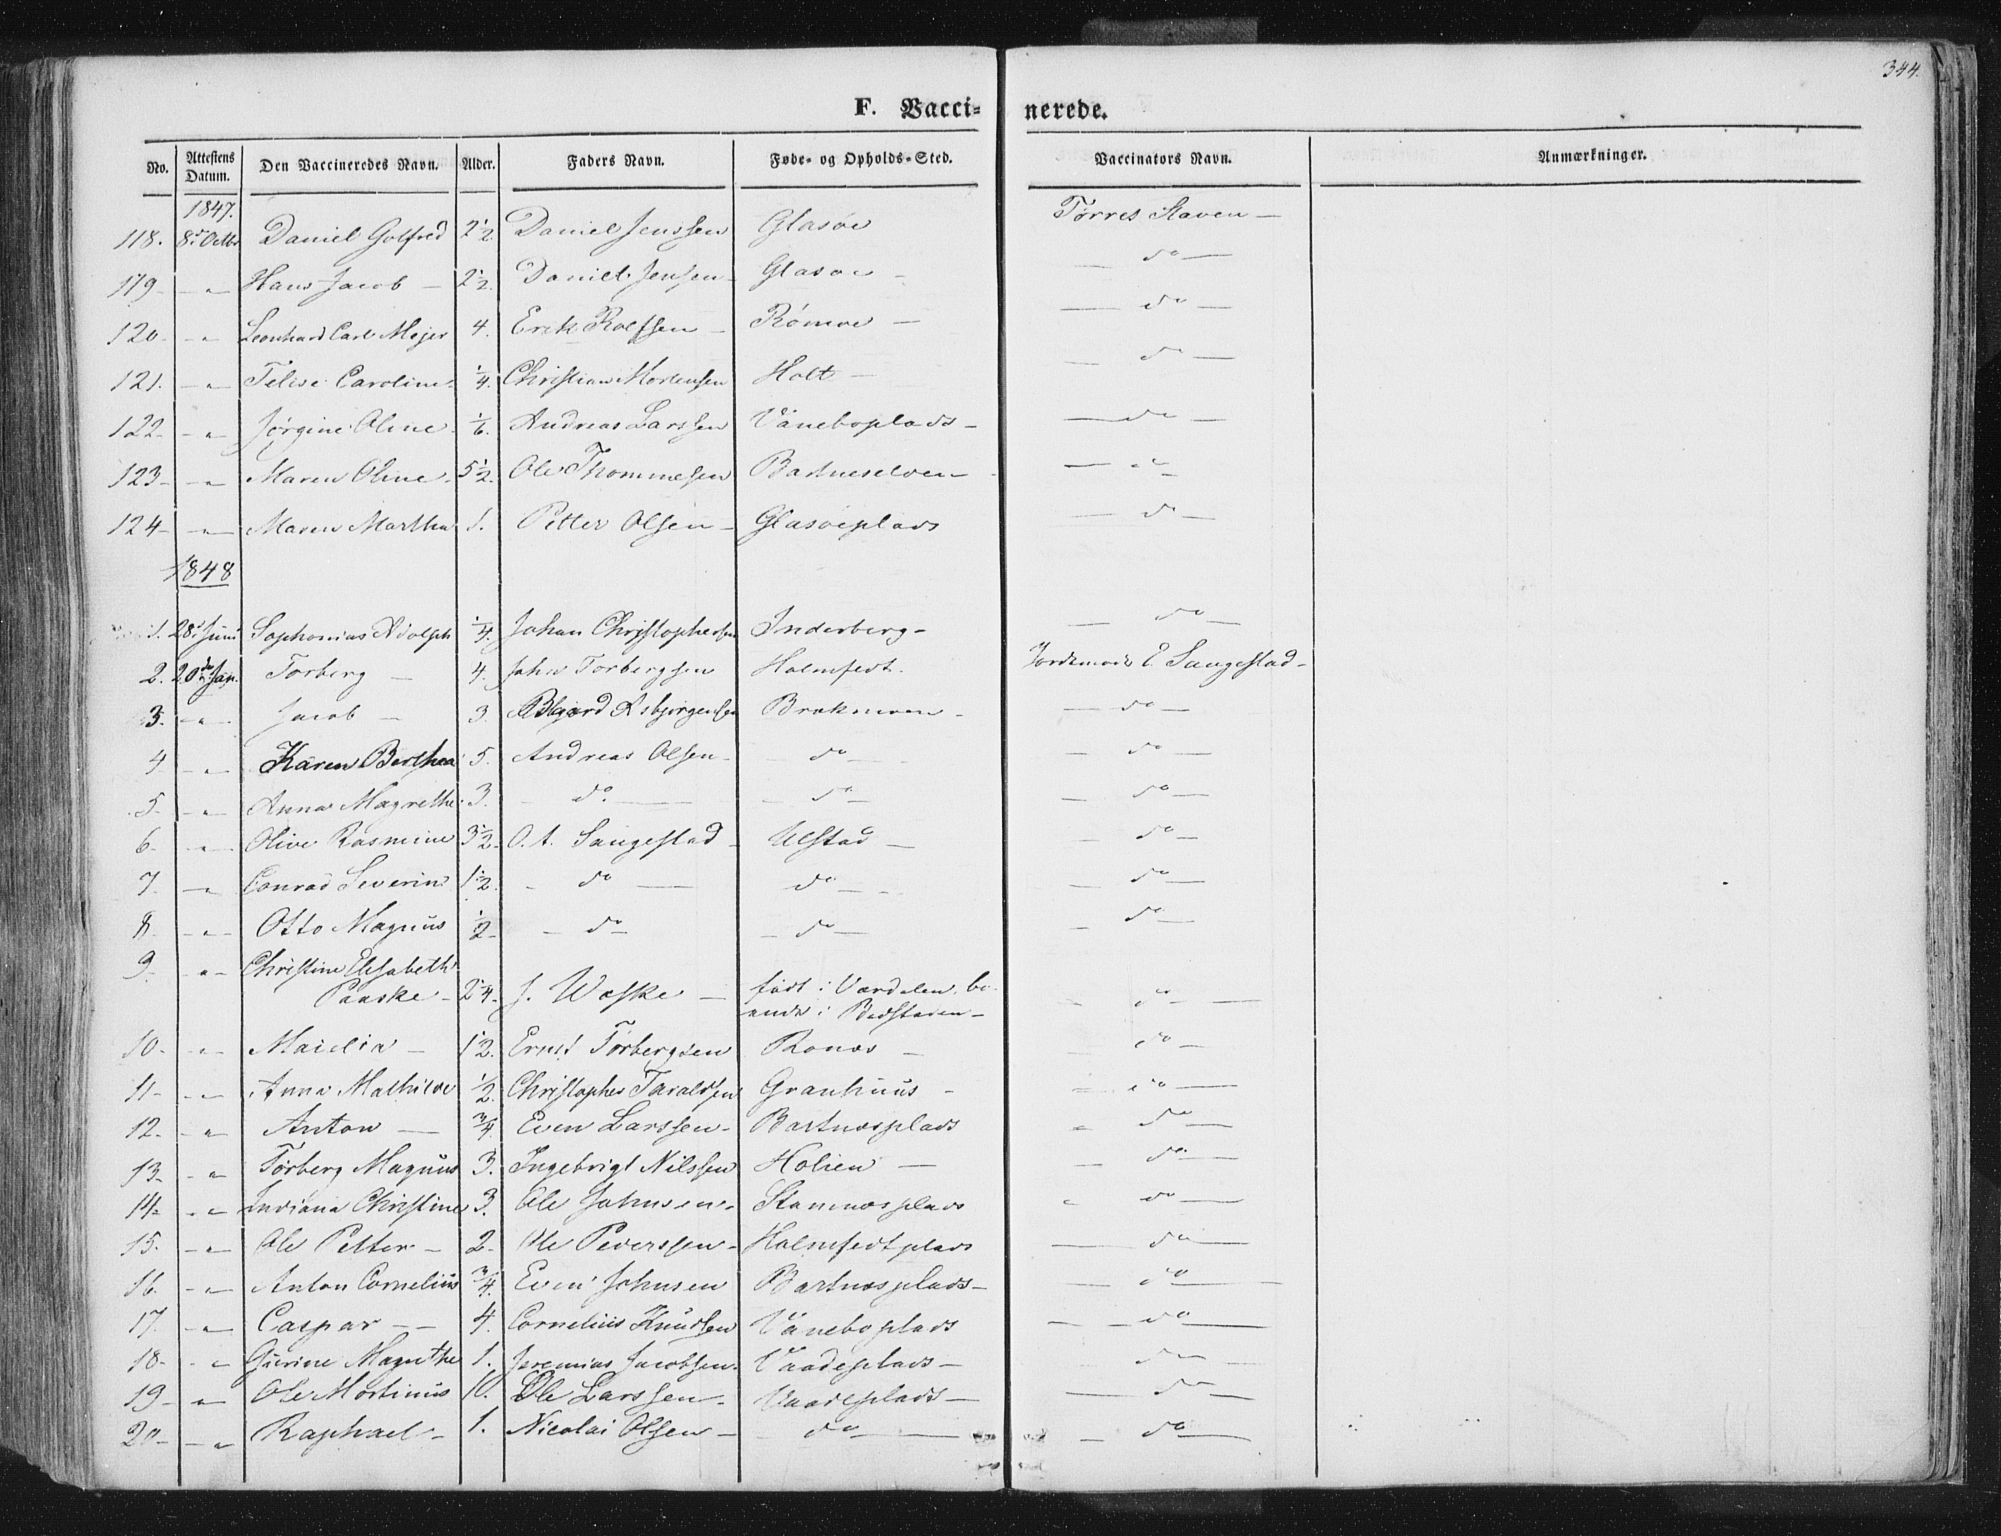 344.
F. Vaccinerede.
No. | Attestens Datum. | Den Vaccineredes Navn. | Alder. | Faders Navn. | Føde- og Opholds-Sted. | Vaccinators Navn. | Anmærkninger.
1847.
118. | 8de Octbr | Daniel Golfred | 2 1/2. | Daniel Jenssen | Glasøe | Tørres Staven —
119 - | - " - | Hans Jacob — | 2 1/2. | Daniel Jensen - | Glasøe - | — do —
120 - | - " - | Leonhard Carl Mejer | 4. | Erik Rolfsen — | Rømoe — | — do —
121. | - " - | Telise Caroline - | 1/4. | Christian Mortensen | Holt — | — do —
122 - | - " - | Jørgine Oline - | 1/6. | Andreas Larssen | Väneboplads - | — do —
123 - | - " - | Maren Oline - | 5 1/2. | Ole Thommesen | Bartneselven - | — do —
124 - | - " - | Maren Martha | 1. | Petter Olsen - | Glasøeplads | — do —
1848
1. | 28de Juni | Sophonias Adolph | 1/4. | Johan Christophersen | Inderberg - | — do —
2. | 20de | Torberg — | 4. | John Torbergsen | Holmfedt. | E Saugestad -
3. | - " - | Jacob — | 3. | Asbjørgensen | Brokmoen - | — do —
4 | - " - | Karen Berthea | 5. | Andreas Olsen - | - do - | — do —
5. | - " - | Anna Magrethe | 3. | - do. — | — do — | — do —
6. | - " - | Olive Rasmine | 3 1/2. | O. A. Saugestad - | Ulstad — | — do —
7. | - " - | Conrad Severin | 1 1/2. | - do — | do — - | — do —
8. | - " - | Otto Magnus | 1/2 - | - do - | — do — | — do —
9. | - " - | Christine Elisabeth
Paaske - | 2 1/4. | J. Weske — | født i Værdalen, bo-
ende i | — do —
10. | - " - | — | 1 1/2. | Ernst Torbergsen | Ronæs — | — do —
11 - | - " - | Anna Mathilde | 1/2. | Christopher Taraldsen | Granhuus - | — do —
12. | - " - | Anton — | 3/4 | Even Larssen - | Bartnæsplads | — do —
13 - | - " - | Torberg Magnus | 3. | Ingebrigt Nilssen | Holien — | — do —
14 | - " - | Indiana Christine | 3. | Ole Johnsen - | Stamnesplads | — do —
15. | - " - | Ole Petter - | 2 - | Ole Pederssen - | Holmfedtplads | — do —
16. | - " - | Anton Cornelius | 3/4. | Even Johnsen | Bartnæsplads - | — do —
17. | - " - | Caspar — — | 4. | Cornelius Knudsen | Väneboplads | — do —
18 - | - " - | Gurine Magrethe | 1. | Jeremias Jacobsen. | Vaadeplads — | — do —
19 - | " - | Ole Mortinus | 10. | Ole Larssen - | Vaadeplads — | — do —
20 - | - " | Raphael - | 1. | Nicolai Olsen - | — do — | — do —